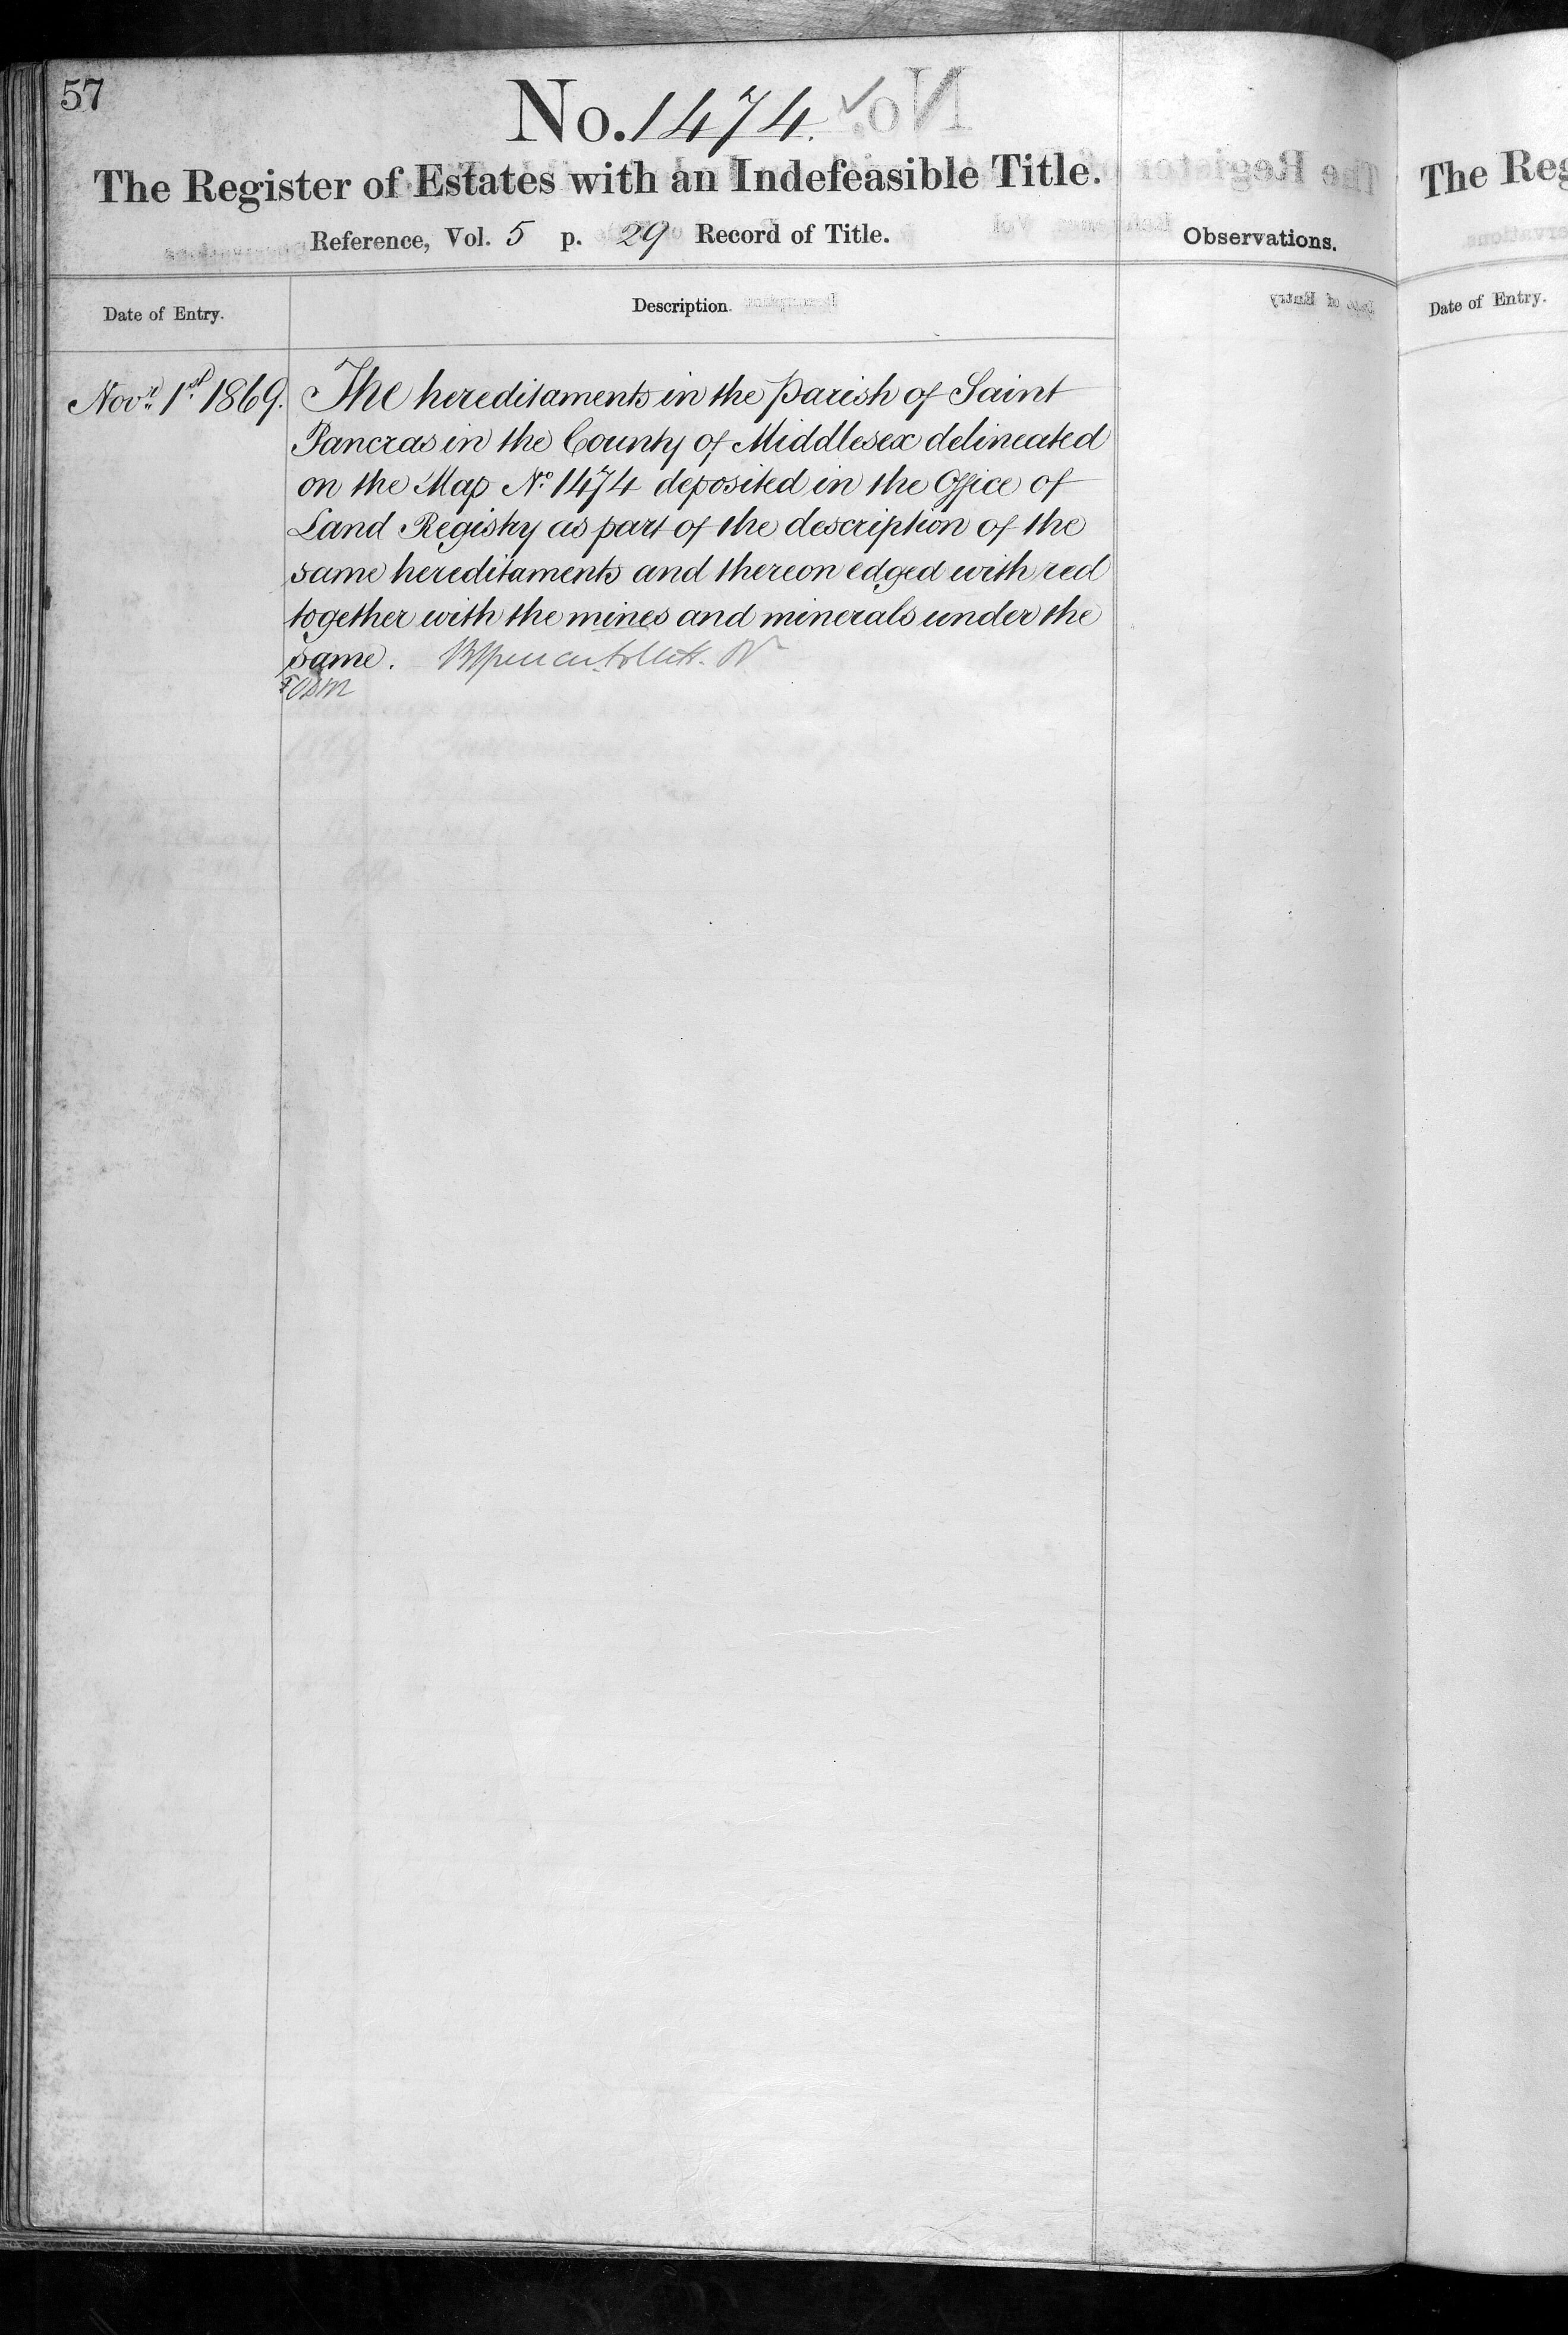 57
No. 1474.
The Register of Estates with an Indefeasible Title.
Reference, Vol. 5 p. 29 Record of Title.
Observations.
Date of Entry.
Description.
Novr. 1st. 1869.
The hereditaments in the Parish of Saint
Pancras in the County of Middlesex delineated
on the Map No. 1474 deposited in the Office of
Land Registry as part of the description of the
same hereditaments and thereon edged with red
together with the mines and minerals under the
same.
The Reg
Date of Entry.